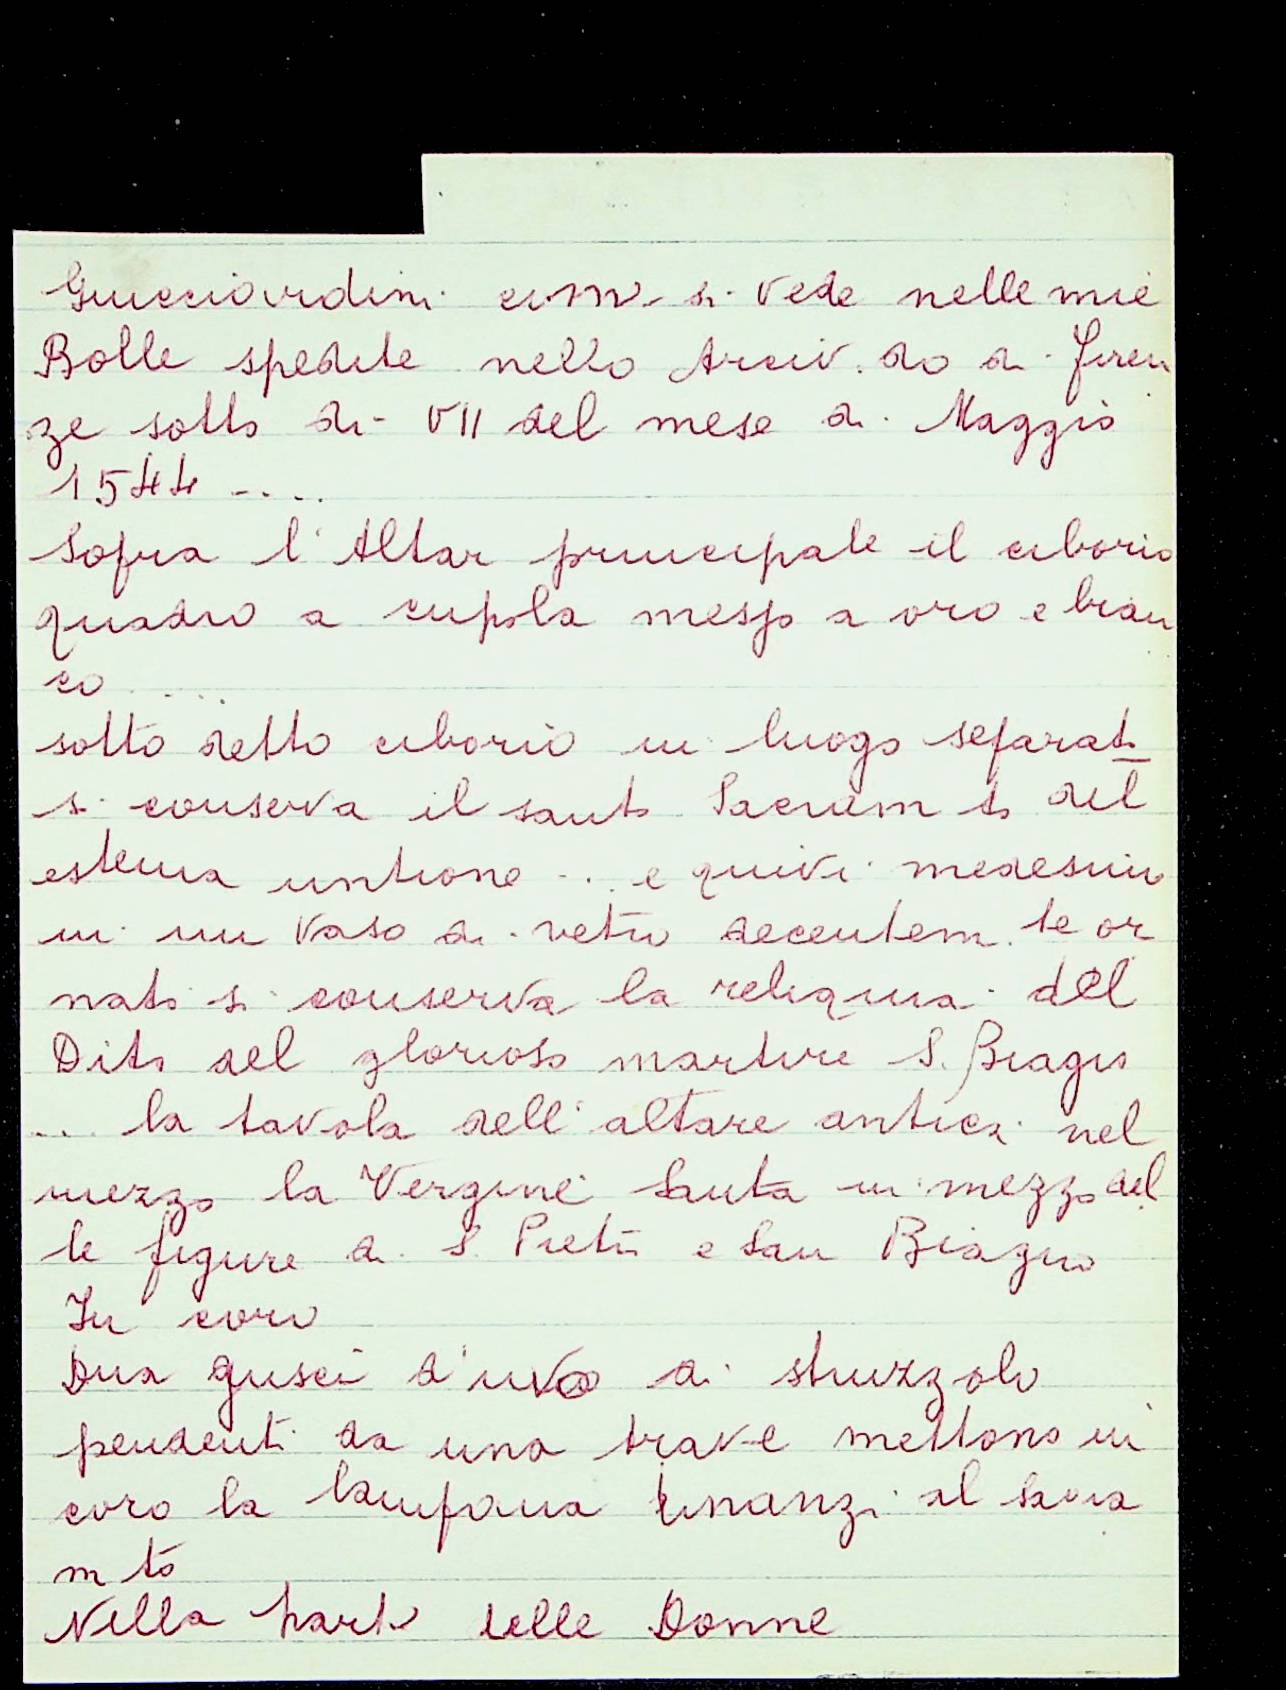 Guicciardini com si vede nelle mie
Bolle spedite nello Arciv.do di firen
ze sotto di VII del mese di Maggio
1544 - ...
Sopra l'Altar principale il ciborio
quadro a cupola messo a oro e bian
co ....
sotto detto ciborio in luogo separato
si conserva il santo Sacram to del
estema untione ... e quivi medesimo
in un vaso di vetro decentem.te or
nato si conserva la reliquia del
Dito del glorioso martire S. Biagio
... la tavola dell'altare antica nel
mezzo la Vergine Santa in mezzo del
le figure di S. Pietro e San Biagio
In coro
Dua gusci d'uvo di struzzolo
pendenti da una trave mettono in
coro la lampana innanzi al Sacra
m to
Nella parte delle Donne